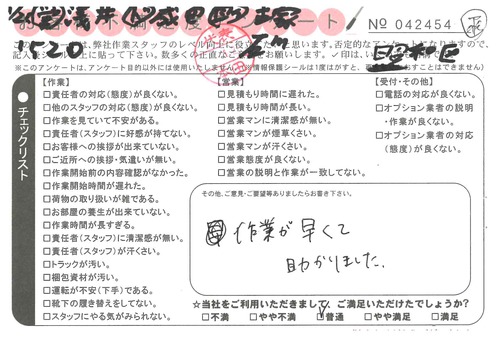 アンケート
№ 042454
1520
ト」は、弊社作業スタッフのレベル向上に役
否定的なアンケートになりますので、
記入後シール
※このアンケートは、アンケート目的以外には使用いたしません
チェックリスト
【作業】
□責任者の対応(態度)が良くない。
□他のスタッフの対応(態度)が良くない。
□作業を見ていて不安がある。
□責任者(スタッフ)に好感が持てない。
□お客様への挨拶が出来ていない。
□ご近所への挨拶・気遣いが無い。
□作業開始前の内容確認がなかった。
□作業開始時間が遅れた。
□荷物の取り扱いが雑である。
□お部屋の養生が出来ていない。
□作業時間が長すぎる。
□責任者(スタッフ)に清潔感が無い。
□責任者(スタッフ)が汗くさい。
□トラックが汚い。
□梱包資材が汚い。
□運転が不安(下手)である。
□靴下の履き替えをしてない。
□スタッフにやる気がみられない。
【営業】
□見積もり時間に遅れた。
□見積もり時間が長い。
□営業マンに清潔感が無い。
□営業マンが煙草くさい。
□営業マンが汗くさい。
□営業態度が良くない。
□営業の説明と作業が一致してない。
【受付・その他】
□電話の対応が良くない。
□オプション業者の説明
・作業が良くない。
□オプション業者の対応
(態度)が良くない。
その他、ご意見・ご要望等ありましたらお書き下さい。
作業が早くて
助かりました。
☆当社をご利用いただきまして、ご満足いただけたでしょうか?
□不満 □やや不満 □普通 □やや満足 □満足